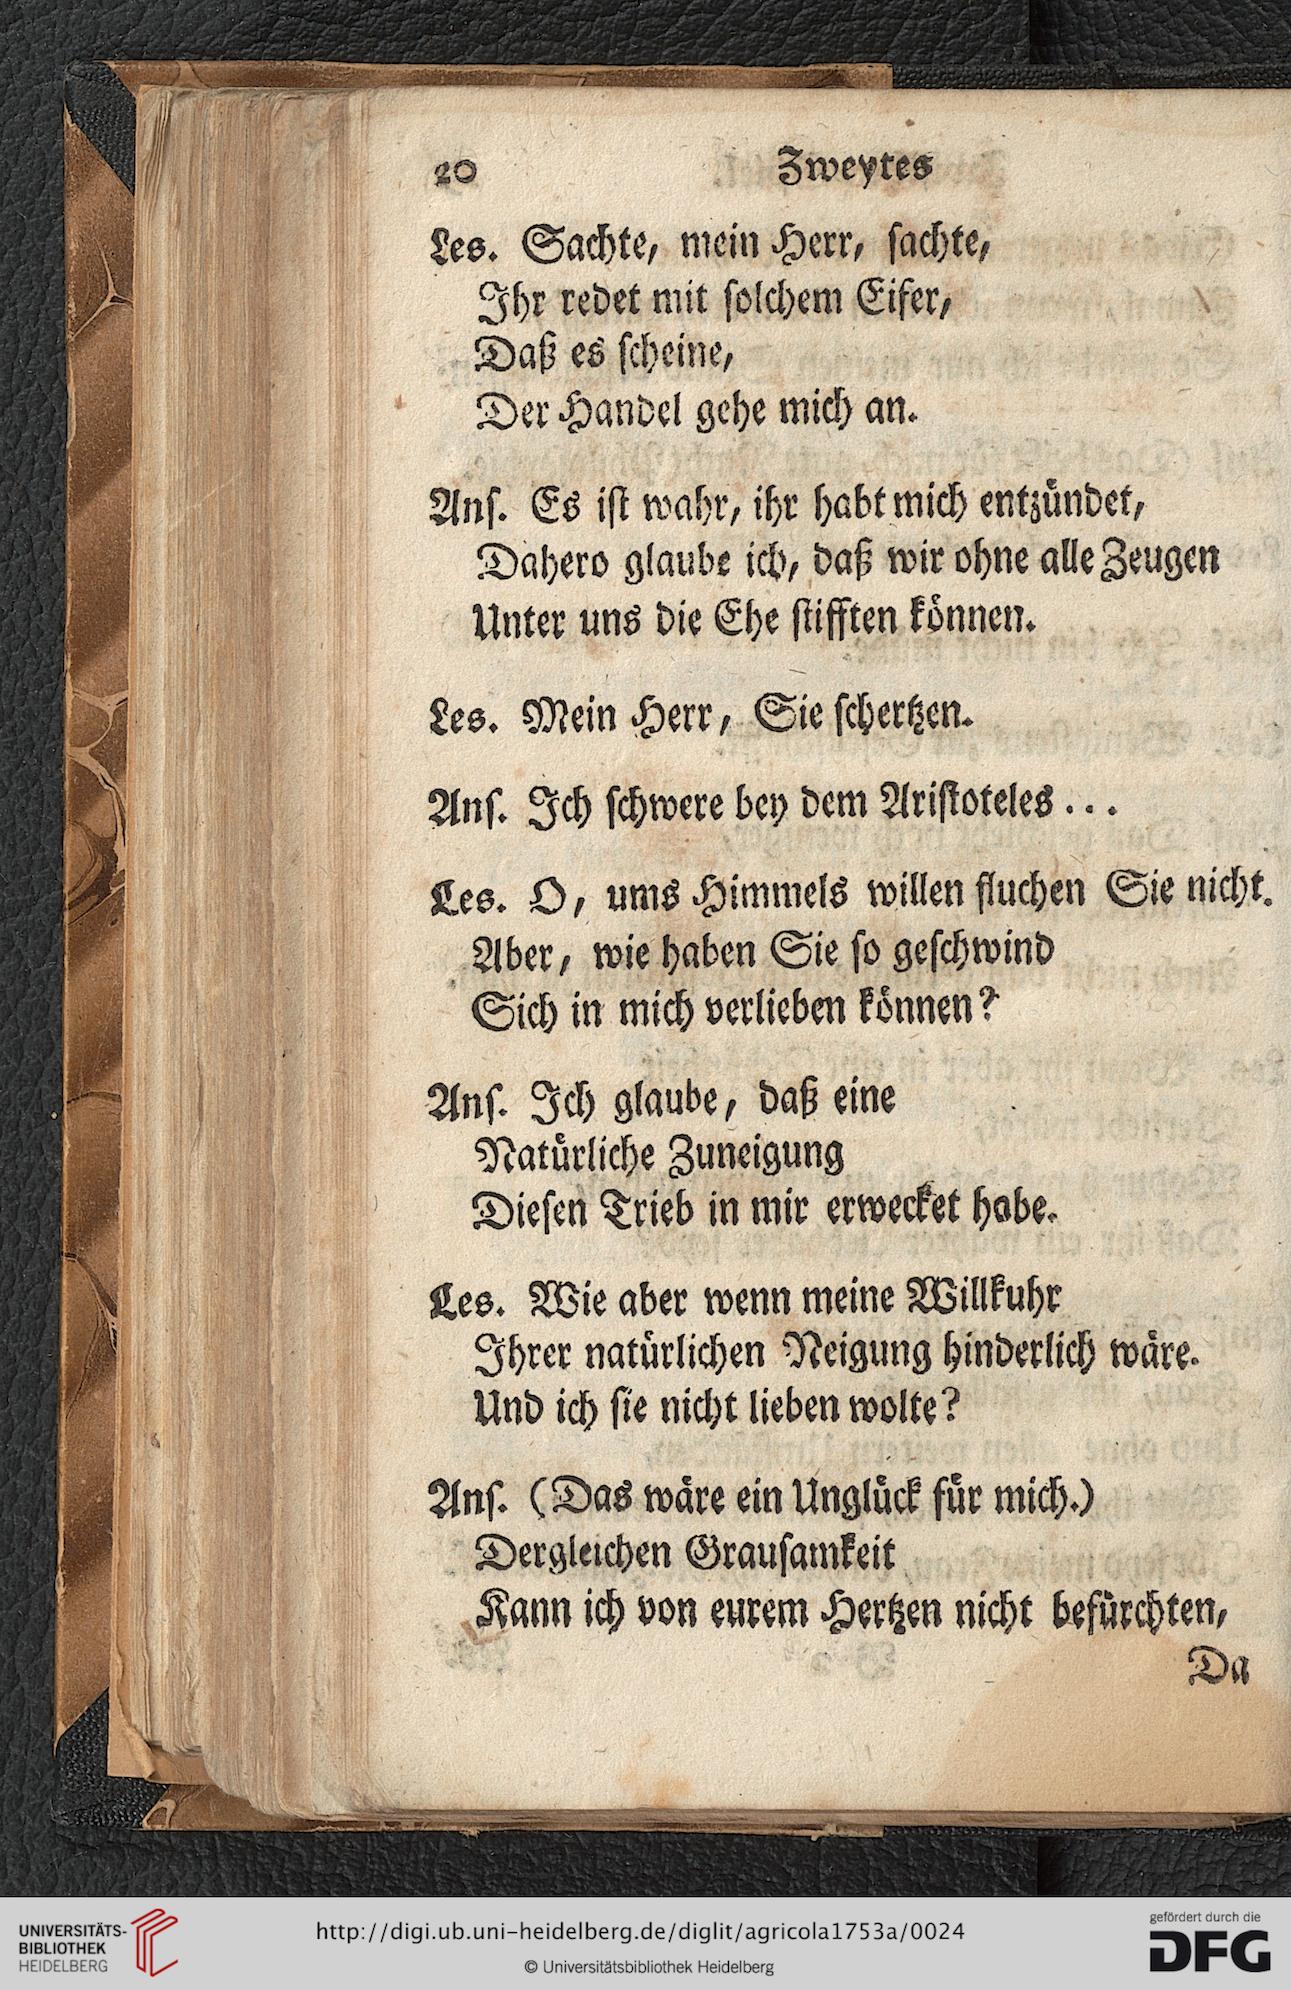 20 Zweytes
Les. Sachte, mein Herr, sachte,
Ihr redet mit solchem Eifer,
Daß es scheine,
Der Handel gehe mich an.
Ans. Es ist wahr, ihr habt mich entzündet,
Dahero glaube ich, daß wir ohne alle Zeugen
Unter uns die Ehe stifften können.
Les. Mein Herr, Sie schertzen.
Ans. Ich schwere bey dem Aristoteles...
Les. O, ums Himmels willen fluchen Sie nicht.
Aber, wie haben Sie so geschwind
Sich in mich verlieben können?
Ans. Ich glaube, daß eine
Natürliche Zuneigung
Diesen Trieb in mir erwecket habe.
Les. Wie aber wenn meine Willkuhr
Ihrer natürlichen Neigung hinderlich wäre.
Und ich sie nicht lieben wolte?
Ans. (Das wäre ein Unglück für mich.)
Dergleichen Grausamkeit
Kann ich von eurem Hertzen nicht befürchten,
Da
UNIVERSITÄTS-
BIBLIOTHEK
HEIDELBERG
http://digi.ub.uni-heidelberg.de/diglit/agricola1753a/0024
© Universitätsbibliothek Heidelberg
gefördert durch die
DFG